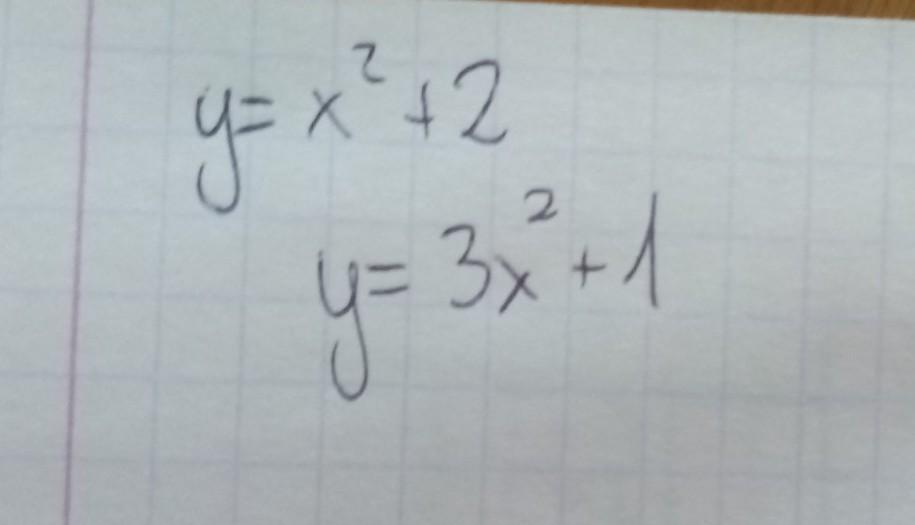 y= x² +2
y= 3x² +1